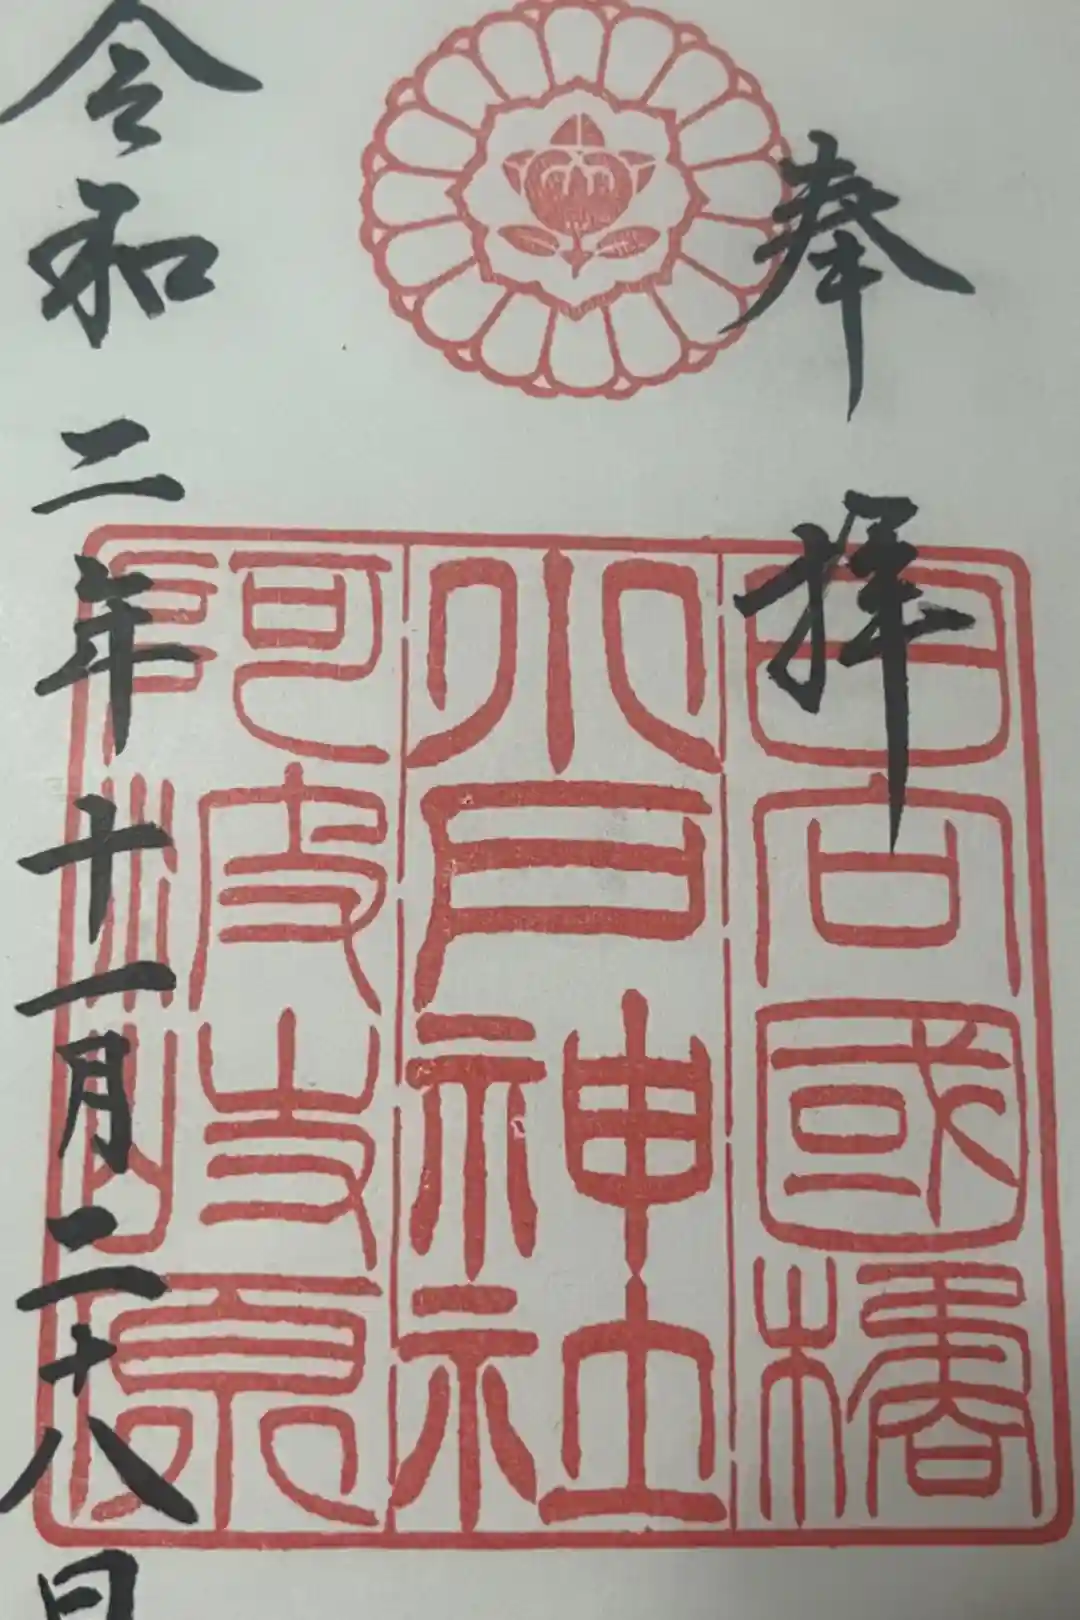 奉拝
日向國橘
小戸神社
阿波岐原
令和二年十一月二十八日